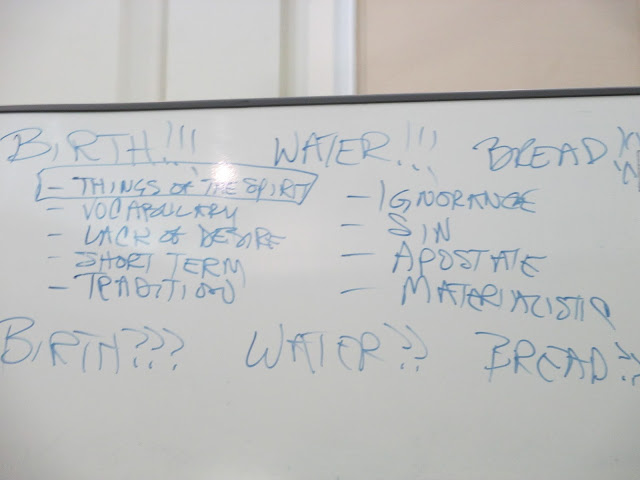 BIRTH!!! WATER!!! BREAD!!
- THINGS OF THE SPIRIT
- VOCABULARY
- LACK OF DESIRE
- SHORT TERM
- TRADITION
- IGNORANCE
- SIN
- APOSTATE
- MATERIALISTIC
BIRTH??? WATER?? BREAD??